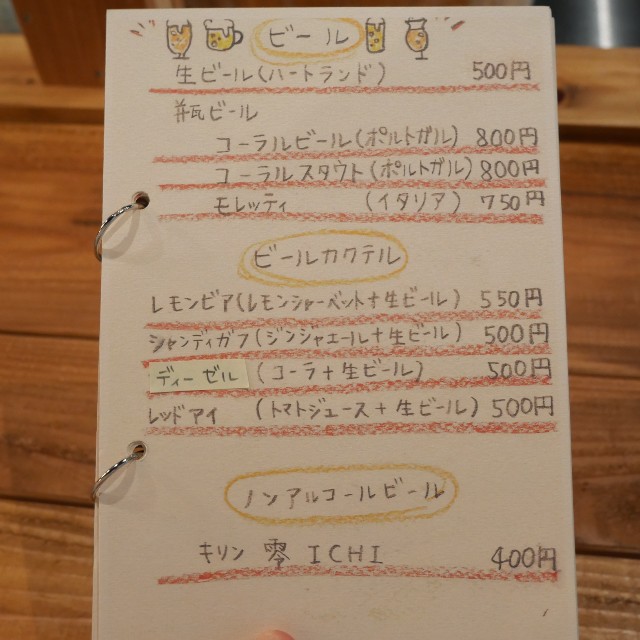 ビール
生ビール(ハートランド) 500円
瓶ビール
コーラルビール(ポルトガル) 800円
コーラルスタウト(ポルトガル) 800円
モレッティ (イタリア) 750円
ビールカクテル
レモンビア(レモンシャーベット+生ビール) 550円
シャンディガフ(ジンジャエール+生ビール) 500円
ディーゼル (コーラ+生ビール) 500円
レッドアイ (トマトジュース+生ビール) 500円
ノンアルコールビール
キリン 零 ICHI 400円